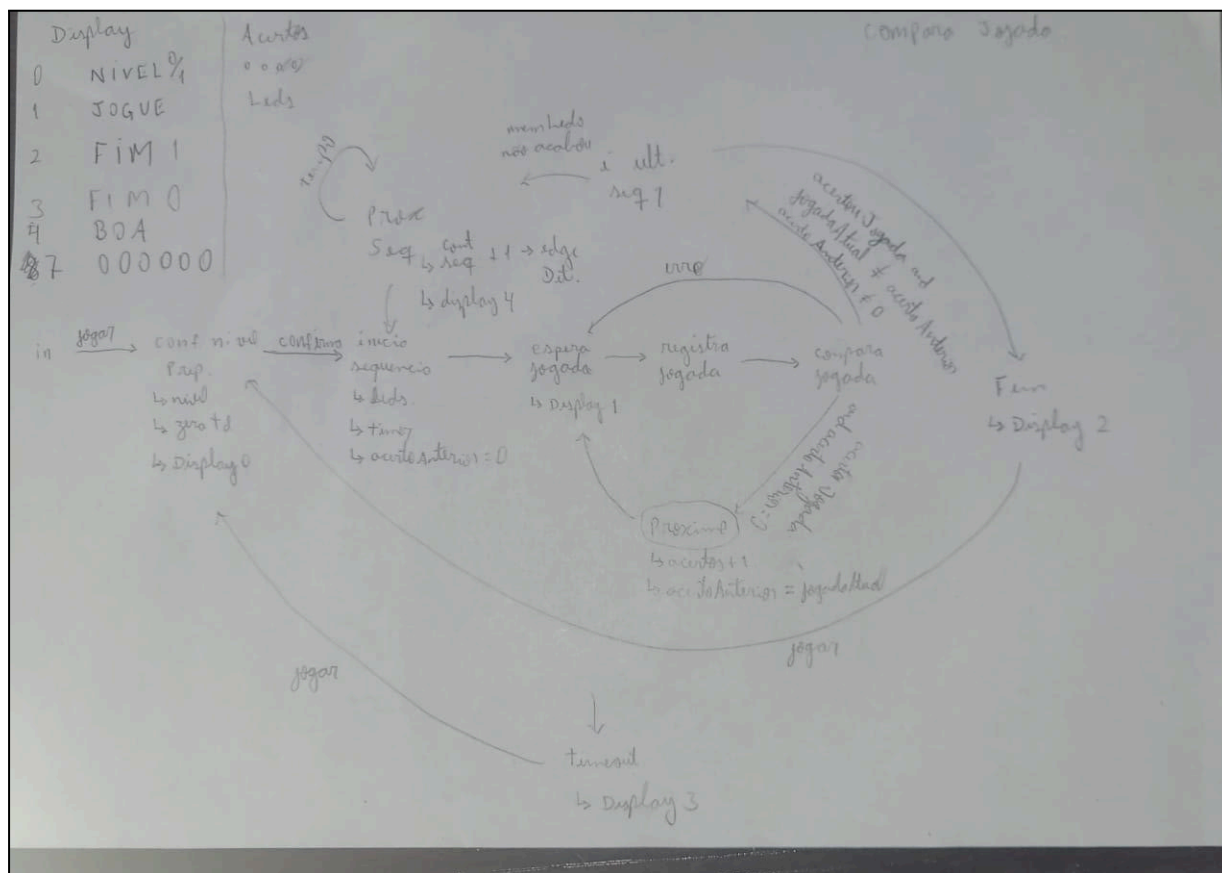 Display
Acertos
0 NIVEL 0/1
1 JOGUE
Leds
2 FIM 1
3 FIM 0
4 BOA
7 000000
Compara Jogada
mem Leds
não acabou
é ult.
seq?
Prox
Seq
↳ cont
seq ++ → edge
Det.
↳ display 4
erro
acertou Jogada and
jogadaAtual ≠ acertoAnterior
acertoAnterior ≠ 0
in
jogar
conf nivel
Prep.
↳ nivel
↳ zera td
↳ Display 0
confirma
inicio
sequencia
↳ leds
↳ timer
↳ acertoAnterior = 0
espera
jogada
↳ Display 1
registra
jogada
compara
jogada
Fim
↳ Display 2
acerta Jogada
and acertoAnterior = 0
Proximo
↳ acertos + 1
↳ acertoAnterior = jogadaAtual
jogar
jogar
timeout
↳ Display 3